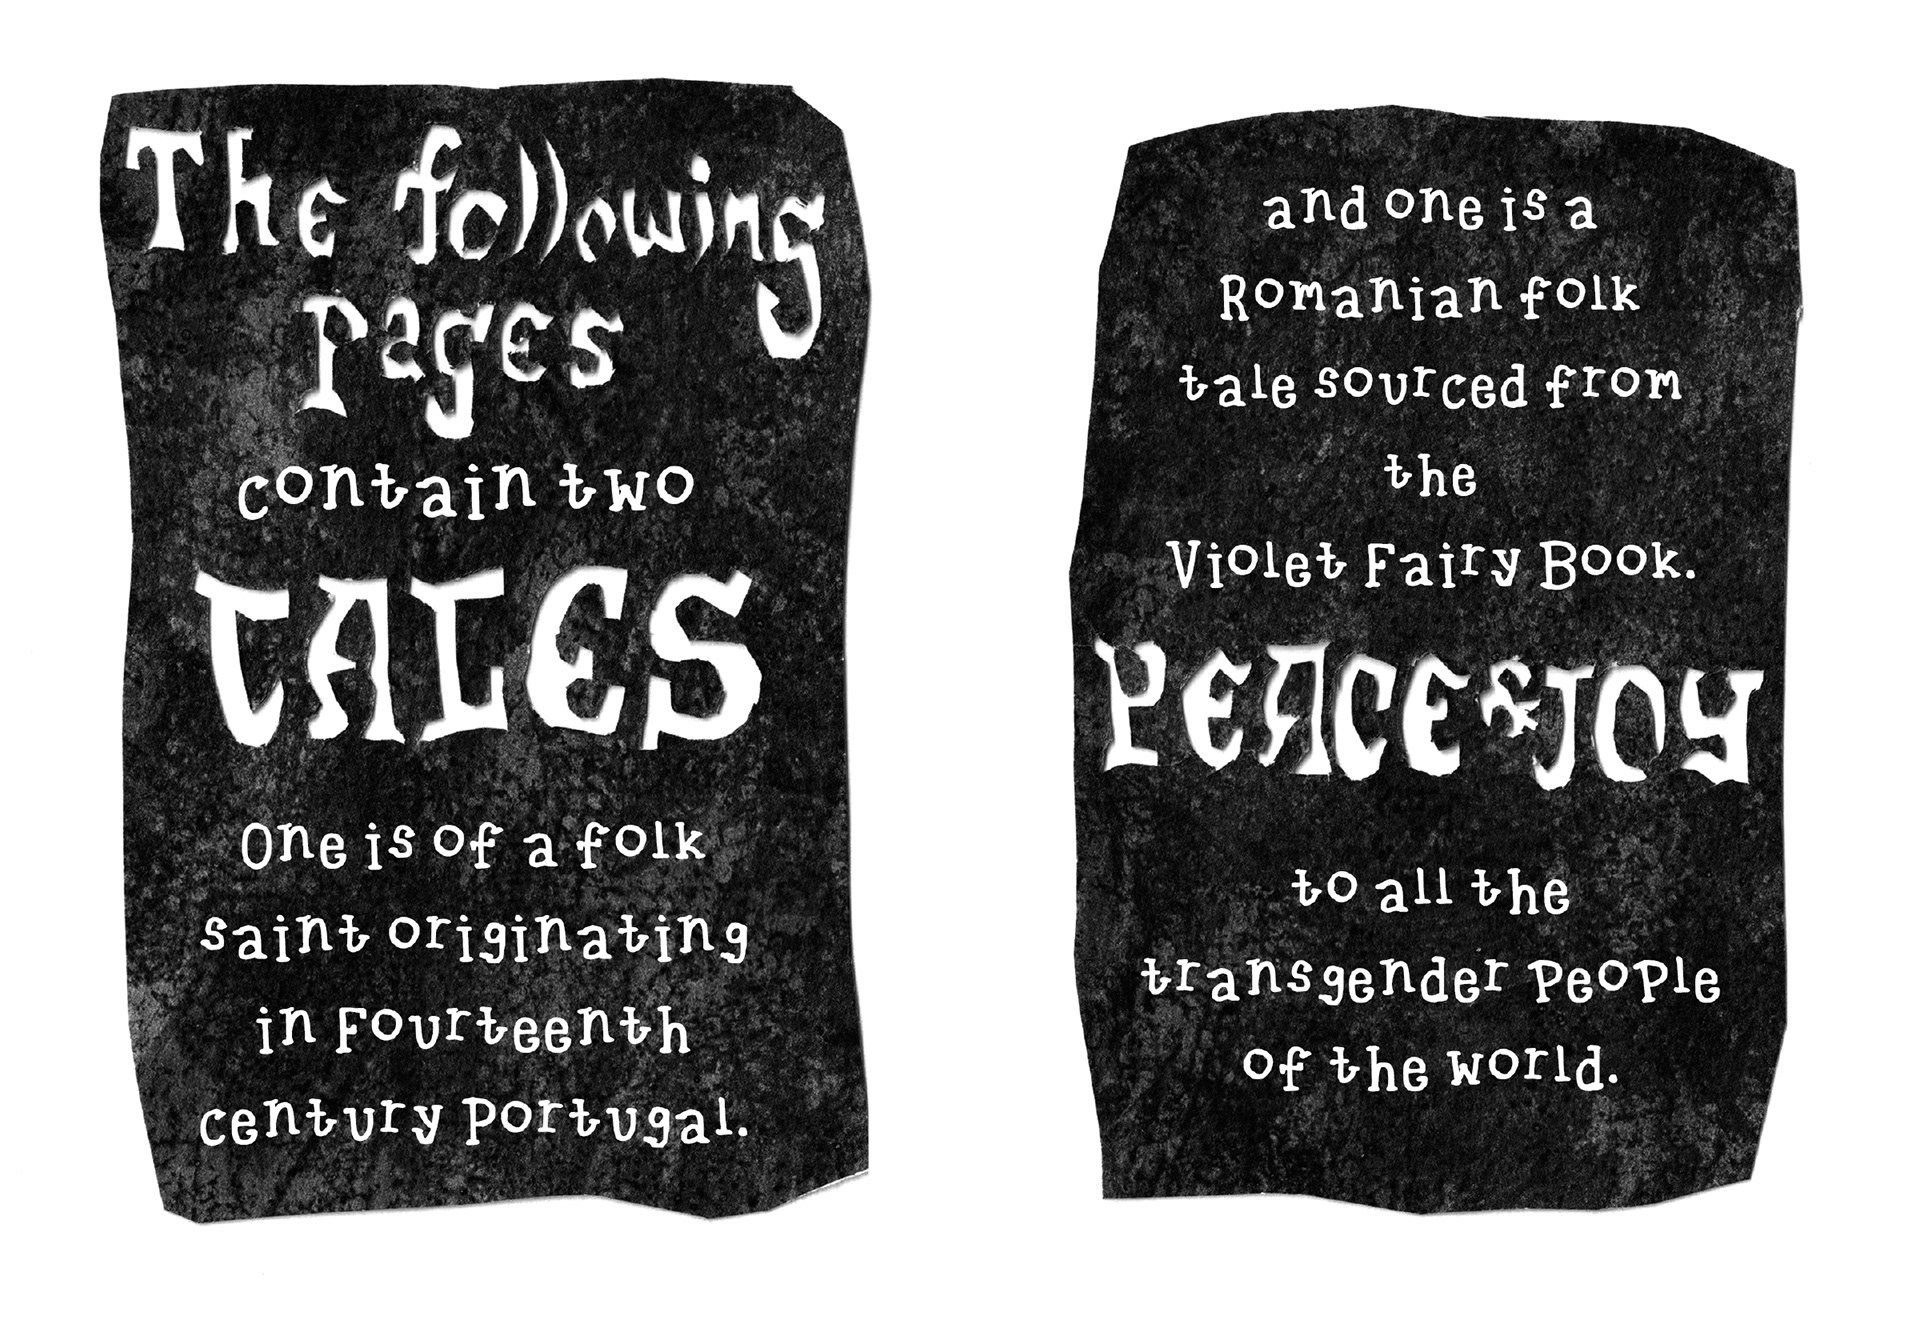 The following
pages
contain two
TALES
One is of a folk
saint originating
in Fourteenth
century Portugal.
and one is a
Romanian folk
tale sourced from
the
Violet Fairy Book.
PEACE & JOY
to all the
transgender people
of the world.